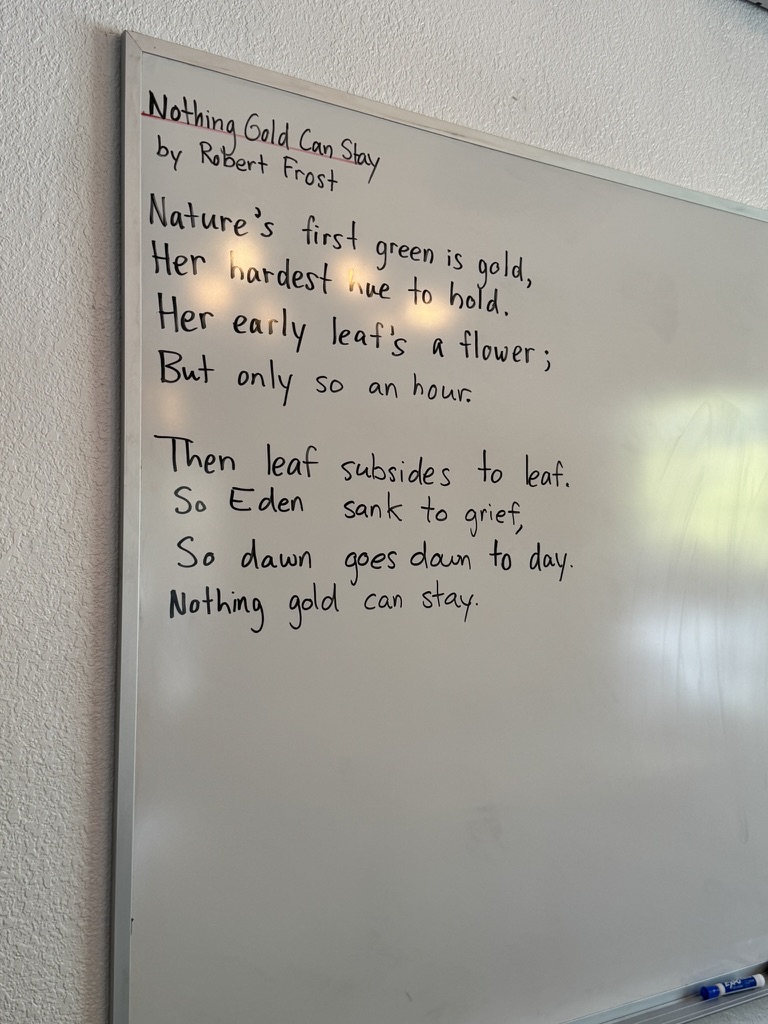 Nothing Gold Can Stay
by Robert Frost
Nature's first green is gold,
Her hardest hue to hold.
Her early leaf's a flower;
But only so an hour.
Then leaf subsides to leaf.
So Eden sank to grief,
So dawn goes down to day.
Nothing gold can stay.
EXPO